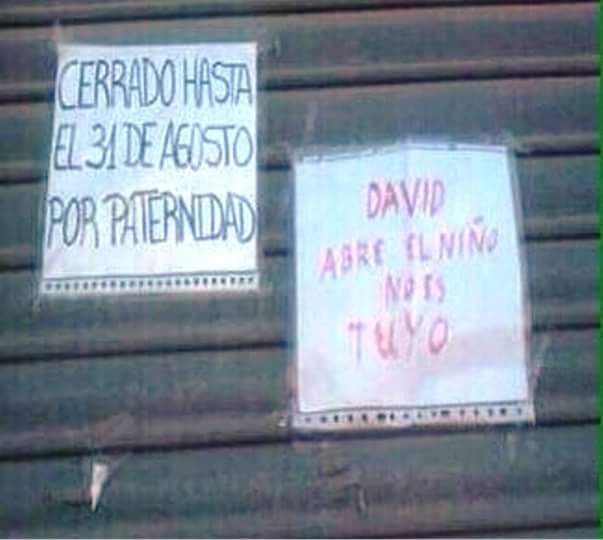 CERRADO HASTA
EL 31 DE AGOSTO
POR PATERNIDAD
DAVID
ABRE EL NIÑO
NO ES
TUYO